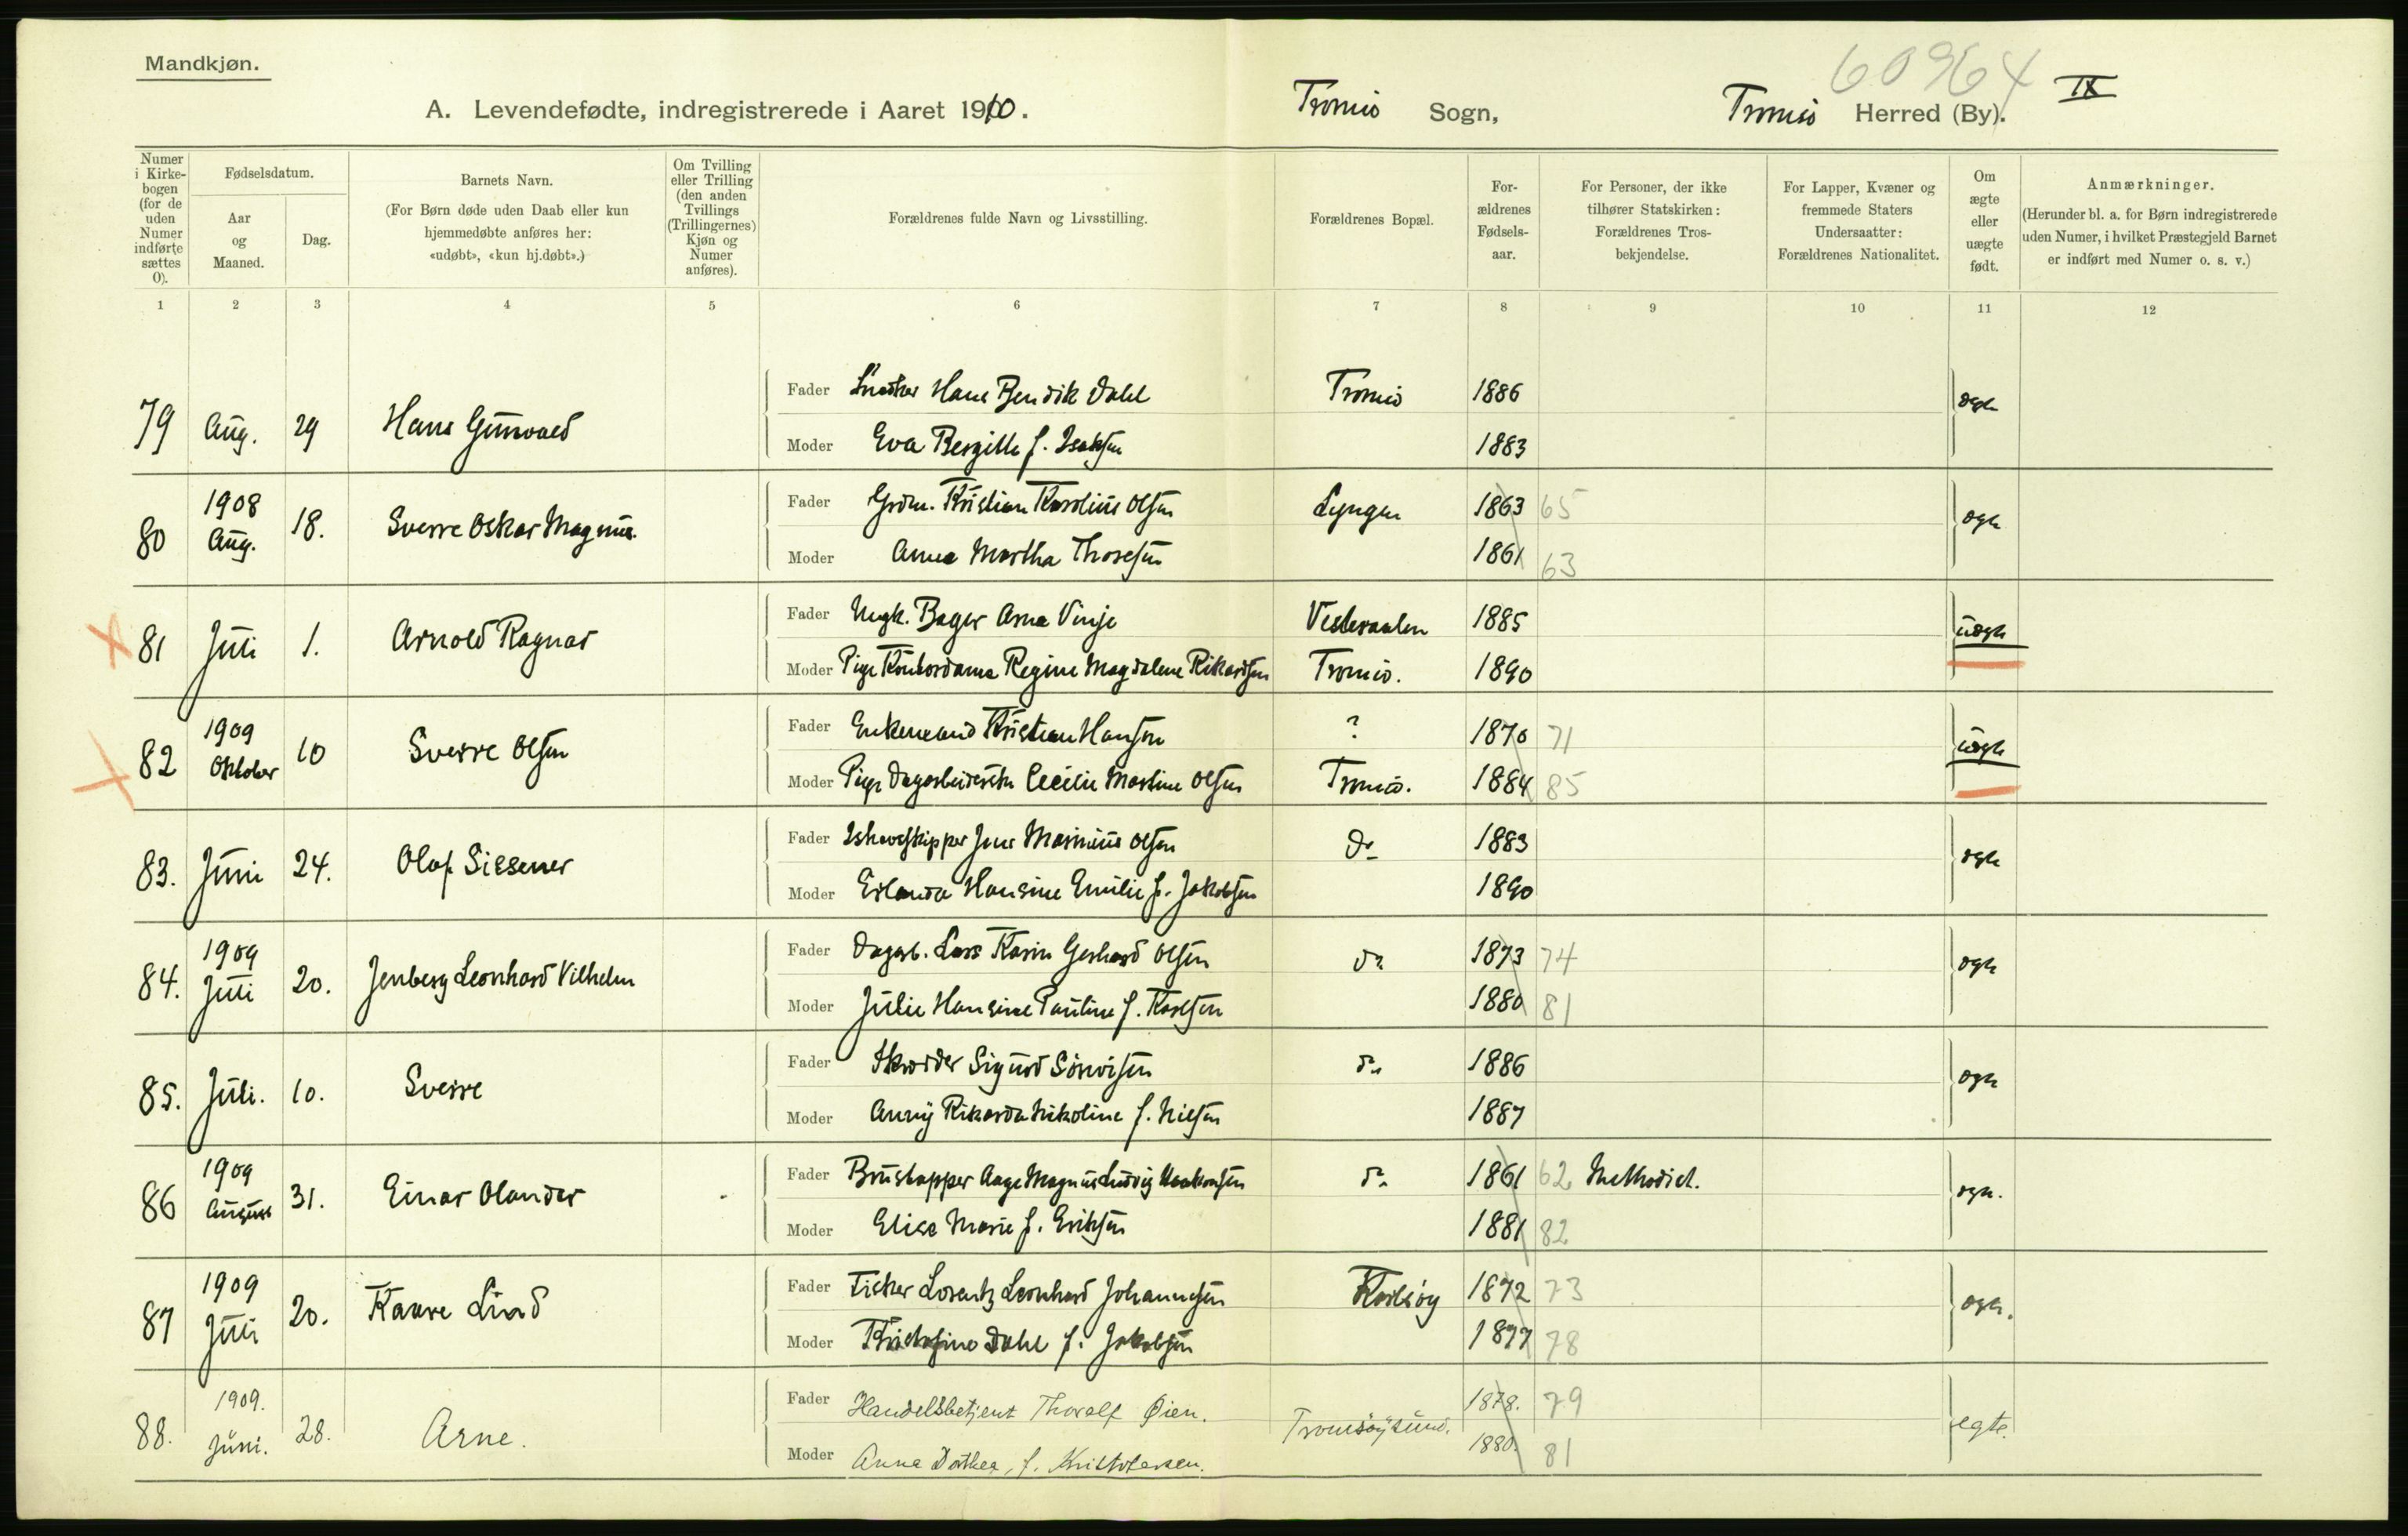 Mandkjøn.
60964
IX
A. Levendefødte, indregistrerede i Aaret 1910. Tromsø Sogn, Tromsø Herred (By).
Numer i Kirkebogen (for de uden Numer indførte sættes 0).
Fødselsdatum.
Aar og Maaned.
Dag.
Barnets Navn.
(For Børn døde uden Daab eller kun hjemmedøbte anføres her: «udøbt», «kun hj.døbt».)
Om Tvilling eller Trilling (den anden Tvillings (Trillingernes) Kjøn og Numer anføres).
Forældrenes fulde Navn og Livsstilling.
Forældrenes Bopæl.
Forældrenes Fødselsaar.
For Personer, der ikke tilhører Statskirken: Forældrenes Trosbekjendelse.
For Lapper, Kvæner og fremmede Staters Undersaatter: Forældrenes Nationalitet.
Om ægte eller uægte født.
Anmærkninger.
(Herunder bl. a. for Børn indregistrerede uden Numer, i hvilket Præstegjeld Barnet er indført med Numer o. s. v.)
1 2 3 4 5 6 7 8 9 10 11 12
79 Aug. 29 Hans Gunvald
Fader Snedker Hans Bendik Dahl Tromsø 1886 ægte
Moder Eva Bergitte f. Isaksen 1883
80 1908 Aug. 18. Sverre Oskar Magnus.
Fader Grdm. Kristian Karolius Olsen Lyngen 1863 65 ægte
Moder Anna Martha Thoresen 1861 63
81 Juli 1. Arnold Ragnar
Fader Ungk. Bager Arne Vinje Vesteraalen 1885 uægte
Moder Pige Kontordame Regine Magdalene Rikardsen Tromsø. 1890
82 1909 Oktober 10 Sverre Olsen
Fader Enkemand Kristian Hansen ? 1870 71 uægte
Moder Pige Dagarbeiderske Cecilie Martine Olsen Tromsø. 1884 85
83. Juni 24. Olaf Sissener
Fader Ishavsskipper Jens Marinius Olsen do 1883 ægte
Moder Erlanda Hansine Emilie f. Jakobsen 1890
84. 1909 Juli 20. Jenberg Leonhard Vilhelm
Fader Dagarb. Lars Karin Gerhard Olsen do 1873 74 ægte
Moder Julie Hansine Pauline f. Karlsen 1880 81
85. Juli. 10. Sverre
Fader Skrædder Sigurd Sørvisen do 1886 ægte
Moder Anny Rikarda Nikoline f. Nilsen 1887
86 1909 August 31. Einar Olander
Fader Brustapper Aage Magnus Ludvig Haakonsen do 1861 62 Methodist. ægte.
Moder Elise Marie f. Eriksen 1881 82
87 1909 Juli 20. Kaare Lind
Fader Fisker Lorentz Leonhard Johannesen Karlsøy 1872 73 ægte.
Moder Kristofine Dahl f. Jakobsen 1877 78
88. 1909. Juni. 28. Arne.
Fader Handelsbetjent Thoralf Øien. Tromsøysund. 1878. 79 egte.
Moder Anna Dorthea, f. Kristofersen. 1880. 81